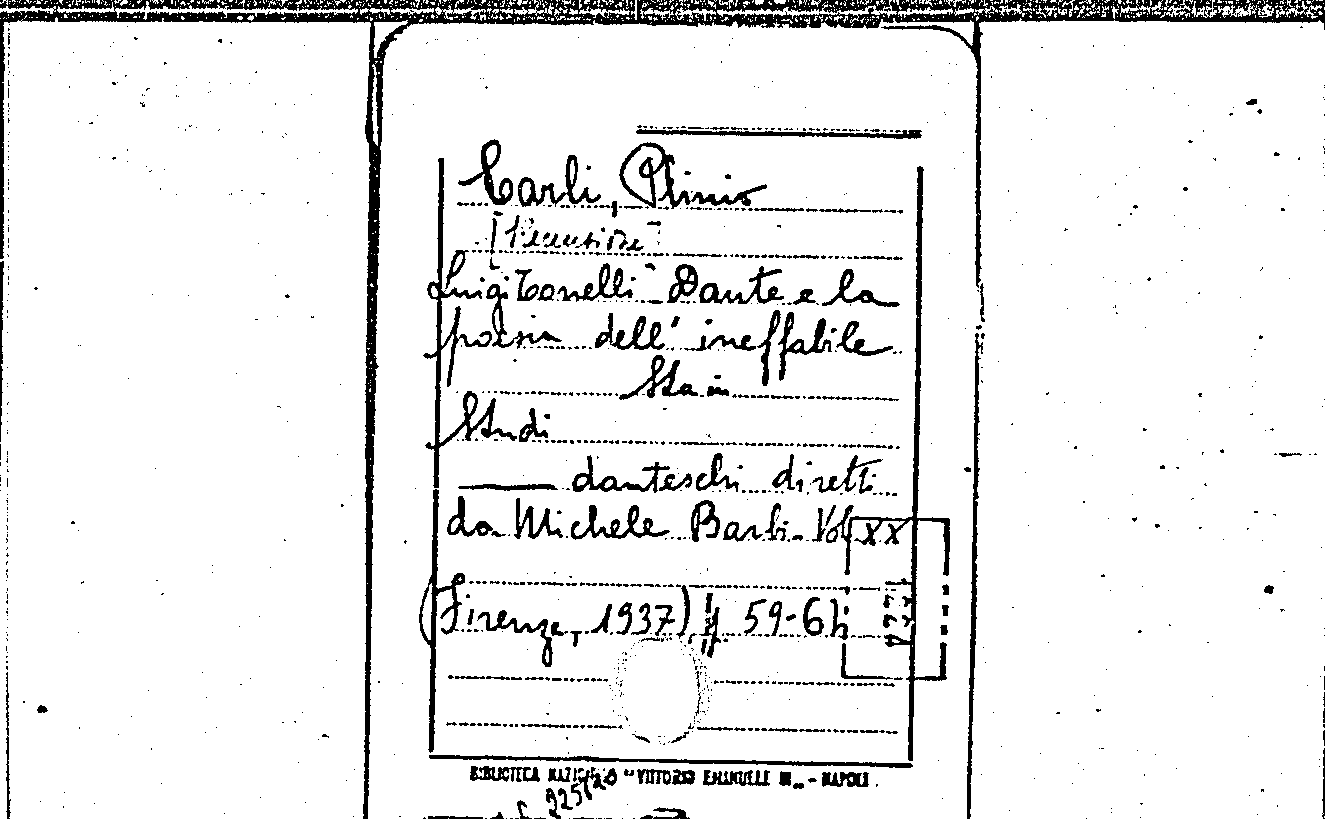 Carli, Plinio
[Recensione]
Luigi Tonelli "Dante e la
poesia dell' ineffabile
Sta in
Studi
danteschi diretti
da Michele Barbi - Vol XX
(Firenze, 1937) 59-6
BIBLIOTECA NAZIONALE "VITTORIO EMANUELE III" - NAPOLI